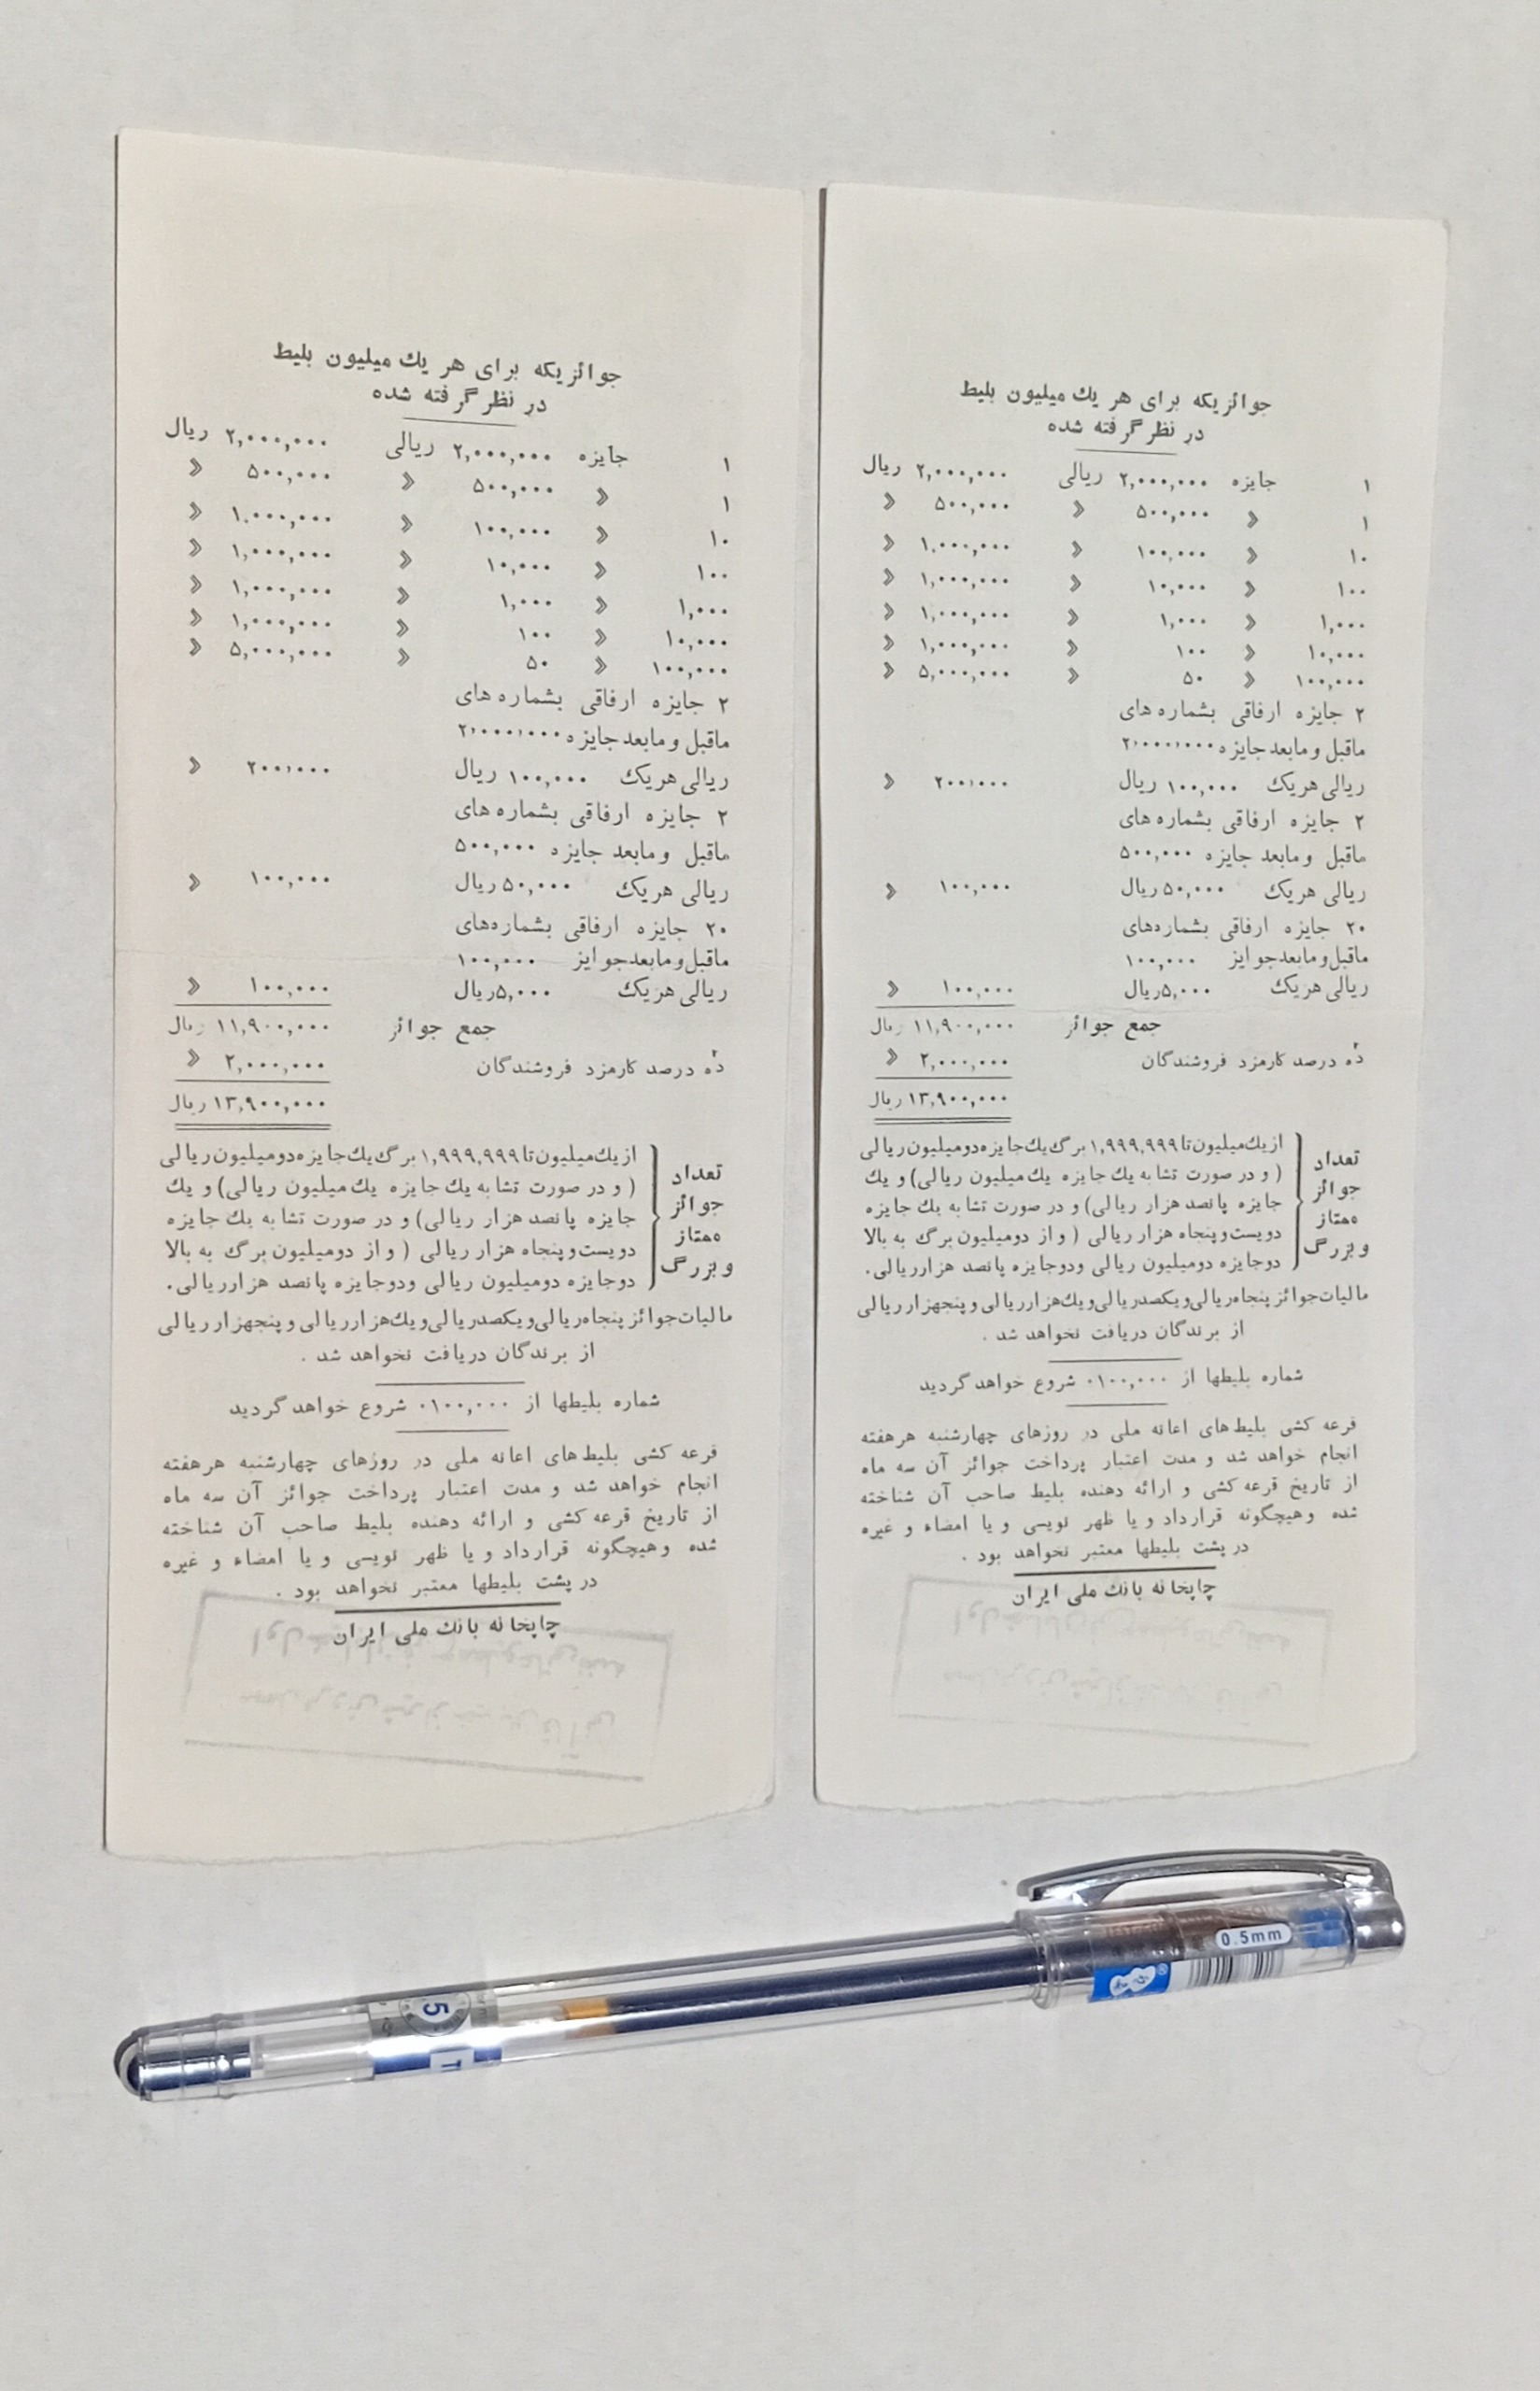 جوائزیکه برای هر یك میلیون بلیط
در نظر گرفته شده
۱ جایزه ۲,۰۰۰,۰۰۰ ریالی ۲,۰۰۰,۰۰۰ ریال
۱ » ۵۰۰,۰۰۰ » ۵۰۰,۰۰۰ »
۱۰ » ۱۰۰,۰۰۰ » ۱,۰۰۰,۰۰۰ »
۱۰۰ » ۱۰,۰۰۰ » ۱,۰۰۰,۰۰۰ »
۱,۰۰۰ » ۱,۰۰۰ » ۱,۰۰۰,۰۰۰ »
۱۰,۰۰۰ » ۱۰۰ » ۱,۰۰۰,۰۰۰ »
۱۰۰,۰۰۰ » ۵۰ » ۵,۰۰۰,۰۰۰ »
۲ جایزه ارفاقی بشماره های
ماقبل و مابعد جایزه ۲,۰۰۰,۰۰۰
ریالی هریك ۱۰۰,۰۰۰ ریال ۲۰۰,۰۰۰ »
۲ جایزه ارفاقی بشماره های
ماقبل و مابعد جایزه ۵۰۰,۰۰۰
ریالی هریك ۵۰,۰۰۰ ریال ۱۰۰,۰۰۰ »
۲۰ جایزه ارفاقی بشماره‌های
ماقبل و مابعد جوایز ۱۰۰,۰۰۰
ریالی هریك ۵,۰۰۰ ریال ۱۰۰,۰۰۰ »
جمع جوائز ۱۱,۹۰۰,۰۰۰ ریال
ده درصد کارمزد فروشندگان ۲,۰۰۰,۰۰۰ »
۱۳,۹۰۰,۰۰۰ ریال
تعداد جوائز ممتاز و بزرگ
از یك میلیون تا ۱,۹۹۹,۹۹۹ برگ یك جایزه دومیلیون ریالی
( و در صورت تشابه یك جایزه یك میلیون ریالی) و یك
جایزه پانصد هزار ریالی) و در صورت تشابه یك جایزه
دویست و پنجاه هزار ریالی ( و از دومیلیون برگ به بالا
دوجایزه دومیلیون ریالی ودوجایزه پانصد هزارریالی.
مالیات جوائز پنجاه ریالی و یکصدریالی و یك هزارریالی و پنجهزارریالی
از برندگان دریافت نخواهد شد .
شماره بلیطها از ۰۱۰۰,۰۰۰ شروع خواهد گردید
قرعه کشی بلیط های اعانه ملی در روزهای چهارشنبه هرهفته
انجام خواهد شد و مدت اعتبار پرداخت جوائز آن سه ماه
از تاریخ قرعه کشی و ارائه دهنده بلیط صاحب آن شناخته
شده وهیچگونه قرارداد و یا ظهر نویسی و یا امضاء و غیره
در پشت بلیطها معتبر نخواهد بود .
چاپخانه بانك ملی ایران
جوائزیکه برای هر یك میلیون بلیط
در نظر گرفته شده
۱ جایزه ۲,۰۰۰,۰۰۰ ریالی ۲,۰۰۰,۰۰۰ ریال
۱ » ۵۰۰,۰۰۰ » ۵۰۰,۰۰۰ »
۱۰ » ۱۰۰,۰۰۰ » ۱,۰۰۰,۰۰۰ »
۱۰۰ » ۱۰,۰۰۰ » ۱,۰۰۰,۰۰۰ »
۱,۰۰۰ » ۱,۰۰۰ » ۱,۰۰۰,۰۰۰ »
۱۰,۰۰۰ » ۱۰۰ » ۱,۰۰۰,۰۰۰ »
۱۰۰,۰۰۰ » ۵۰ » ۵,۰۰۰,۰۰۰ »
۲ جایزه ارفاقی بشماره های
ماقبل و مابعد جایزه ۲,۰۰۰,۰۰۰
ریالی هریك ۱۰۰,۰۰۰ ریال ۲۰۰,۰۰۰ »
۲ جایزه ارفاقی بشماره های
ماقبل و مابعد جایزه ۵۰۰,۰۰۰
ریالی هریك ۵۰,۰۰۰ ریال ۱۰۰,۰۰۰ »
۲۰ جایزه ارفاقی بشماره‌های
ماقبل و مابعد جوایز ۱۰۰,۰۰۰
ریالی هریك ۵,۰۰۰ ریال ۱۰۰,۰۰۰ »
جمع جوائز ۱۱,۹۰۰,۰۰۰ ریال
ده درصد کارمزد فروشندگان ۲,۰۰۰,۰۰۰ »
۱۳,۹۰۰,۰۰۰ ریال
تعداد جوائز ممتاز و بزرگ
از یك میلیون تا ۱,۹۹۹,۹۹۹ برگ یك جایزه دومیلیون ریالی
( و در صورت تشابه یك جایزه یك میلیون ریالی) و یك
جایزه پانصد هزار ریالی) و در صورت تشابه یك جایزه
دویست و پنجاه هزار ریالی ( و از دومیلیون برگ به بالا
دوجایزه دومیلیون ریالی ودوجایزه پانصد هزارریالی.
مالیات جوائز پنجاه ریالی و یکصدریالی و یك هزارریالی و پنجهزارریالی
از برندگان دریافت نخواهد شد .
شماره بلیطها از ۰۱۰۰,۰۰۰ شروع خواهد گردید
قرعه کشی بلیط های اعانه ملی در روزهای چهارشنبه هرهفته
انجام خواهد شد و مدت اعتبار پرداخت جوائز آن سه ماه
از تاریخ قرعه کشی و ارائه دهنده بلیط صاحب آن شناخته
شده وهیچگونه قرارداد و یا ظهر نویسی و یا امضاء و غیره
در پشت بلیطها معتبر نخواهد بود .
چاپخانه بانك ملی ایران
0.5mm
5
T